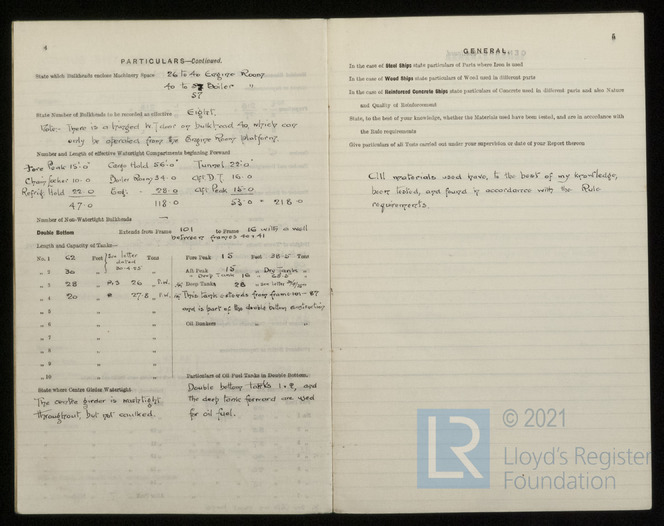 4
PARTICULARS—Continued.
State which Bulkheads enclose Machinery Space 26 to 40 Engine Room
40 to 57 Boiler "
57
State Number of Bulkheads to be recorded as effective Eight.
Note. There is a hinged W.T. door on bulkhead 40, which can
only be operated from the Engine Room platform.
Number and Length of effective Watertight Compartments beginning Forward
Fore Peak 15'.0" Cargo Hold 56.0" Tunnel 22'.0"
Chain Locker 10.0 Boiler Room 34.0 Aft D.T. 16.0
Refrig. Hold 22.0 Eng. " 28.0 Aft Peak 15.0
47.0 118.0 53.0 = 218.0
Number of Non-Watertight Bulkheads —
Double Bottom Extends from Frame 101 to Frame 16 with a well
between frames 40 & 41
Length and Capacity of Tanks—
No. 1 62 Feet See letter dated 30-4-25 Tons
" 2 30 " "
" 3 28 " P & S 26 " F.W.
" 4 20 " " 27.8 " F.W.
" 5 " "
" 6 " "
" 7 " "
" 8 " "
" 9 " "
" 10 " "
Fore Peak 15 Feet 38.5 Tons
Aft Peak 15 " Dry Tank "
" Deep Tank 16 "
Deep Tanks 28 " see letter
This tank extends from frame 101 – 87
and is part of the double bottom construction
Oil Bunkers " "
State where Centre Girder Watertight
The centre girder is watertight
throughout, but not caulked.
Particulars of Oil Fuel Tanks in Double Bottom.
Double bottom tanks 1 & 2, and
the deep tank forward are used
for oil fuel.
5
GENERAL.
In the case of Steel Ships state particulars of Parts where Iron is used
In the case of Wood Ships state particulars of Wood used in different parts
In the case of Reinforced Concrete Ships state particulars of Cement used in different parts and also Nature
and Quality of Reinforcement
State, to the best of your knowledge, whether the Materials used have been tested, and are in accordance with
the Rule requirements
Give particulars of all Tests carried out under your supervision or date of your Report thereon
All materials used have, to the best of my knowledge,
been tested, and found in accordance with the Rule
requirements.
LR
© 2021
Lloyd's Register
Foundation